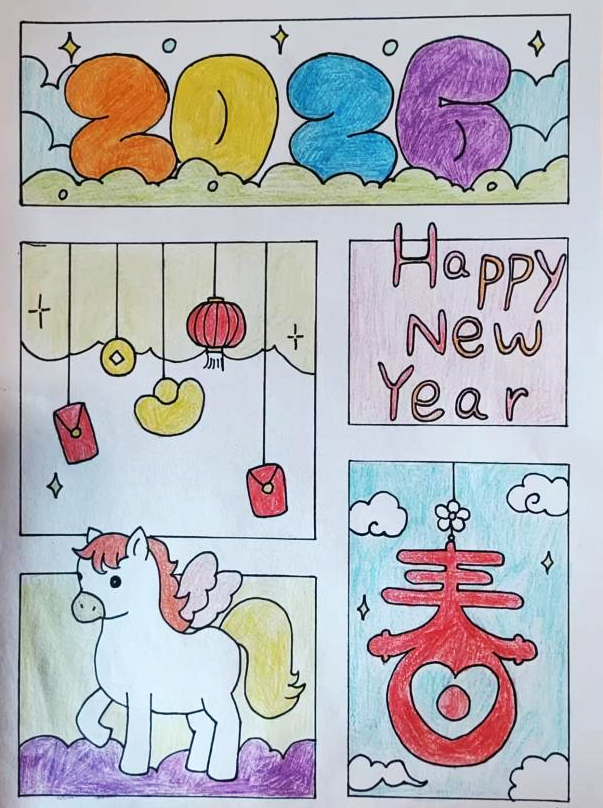 2026
Happy
New
Year
春